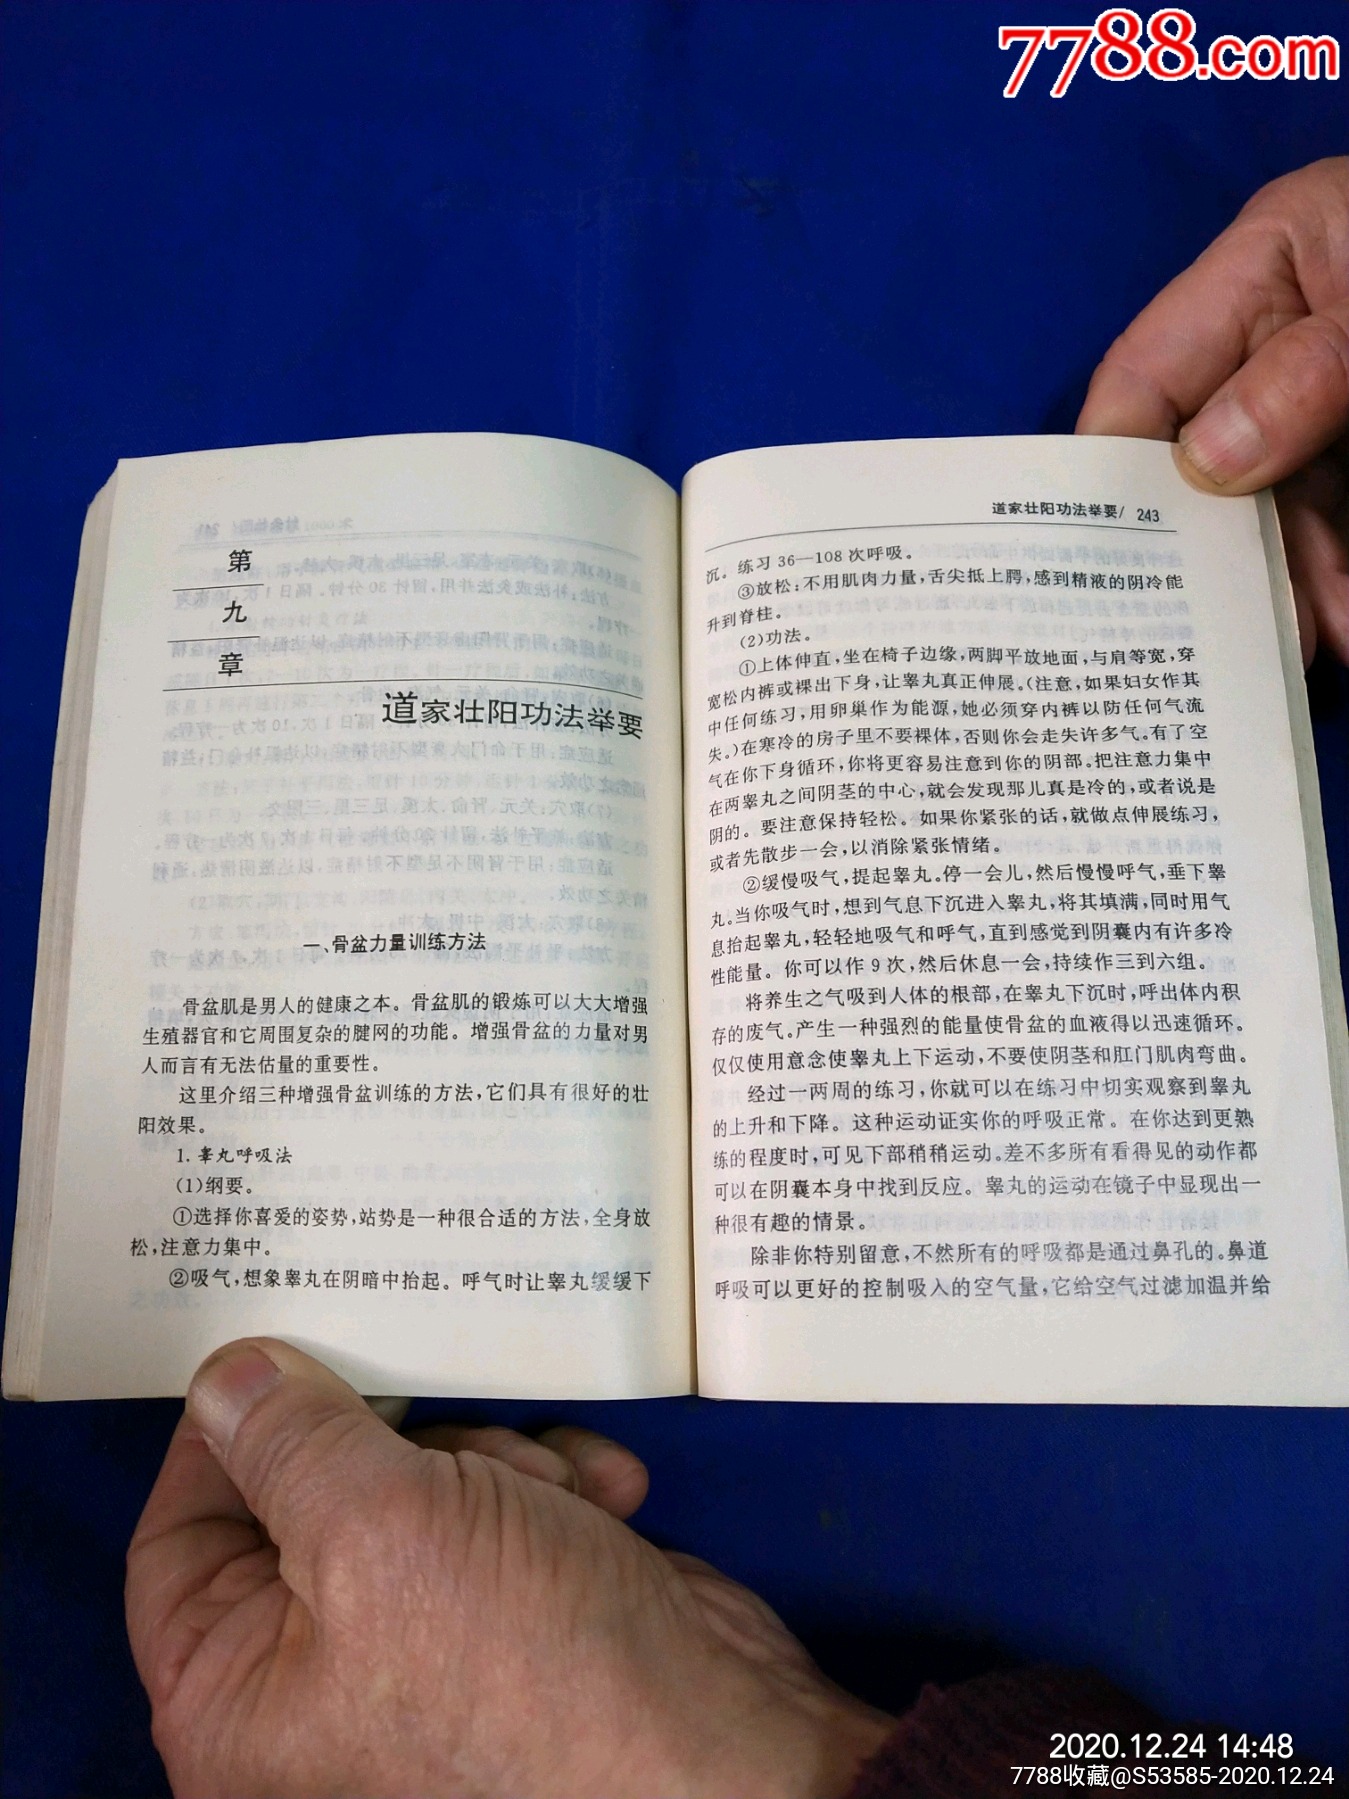 7788.com
第
九
章
道家壮阳功法举要
一、骨盆力量训练方法
骨盆肌是男人的健康之本。骨盆肌的锻炼可以大大增强
生殖器官和它周围复杂的腱网的功能。增强骨盆的力量对男
人而言有无法估量的重要性。
这里介绍三种增强骨盆训练的方法，它们具有很好的壮
阳效果。
1.睾丸呼吸法
(1)纲要。
①选择你喜爱的姿势，站势是一种很合适的方法，全身放
松，注意力集中。
②吸气，想象睾丸在阴暗中抬起。呼气时让睾丸缓缓下
道家壮阳功法举要/ 243
沉。练习36—108次呼吸。
③放松：不用肌肉力量，舌尖抵上腭，感到精液的阴冷能
升到脊柱。
(2)功法。
①上体伸直，坐在椅子边缘，两脚平放地面，与肩等宽，穿
宽松内裤或裸出下身，让睾丸真正伸展。(注意，如果妇女作其
中任何练习，用卵巢作为能源，她必须穿内裤以防任何气流
失。)在寒冷的房子里不要裸体，否则你会走失许多气。有了空
气在你下身循环，你将更容易注意到你的阴部。把注意力集中
在两睾丸之间阴茎的中心，就会发现那儿真是冷的，或者说是
阴的。要注意保持轻松。如果你紧张的话，就做点伸展练习，
或者先散步一会，以消除紧张情绪。
②缓慢吸气，提起睾丸。停一会儿，然后慢慢呼气，垂下睾
丸。当你吸气时，想到气息下沉进入睾丸，将其填满，同时用气
息抬起睾丸，轻轻地吸气和呼气，直到感觉到阴囊内有许多冷
性能量。你可以作9次，然后休息一会，持续作三到六组。
将养生之气吸到人体的根部，在睾丸下沉时，呼出体内积
存的废气。产生一种强烈的能量使骨盆的血液得以迅速循环。
仅仅使用意念使睾丸上下运动，不要使阴茎和肛门肌肉弯曲。
经过一两周的练习，你就可以在练习中切实观察到睾丸
的上升和下降。这种运动证实你的呼吸正常。在你达到更熟
练的程度时，可见下部稍稍运动。差不多所有看得见的动作都
可以在阴囊本身中找到反应。睾丸的运动在镜子中显现出一
种很有趣的情景。
除非你特别留意，不然所有的呼吸都是通过鼻孔的。鼻道
呼吸可以更好的控制吸入的空气量，它给空气过滤加温并给
2020.12.24 14:48
7788收藏@S53585-2020.12.24